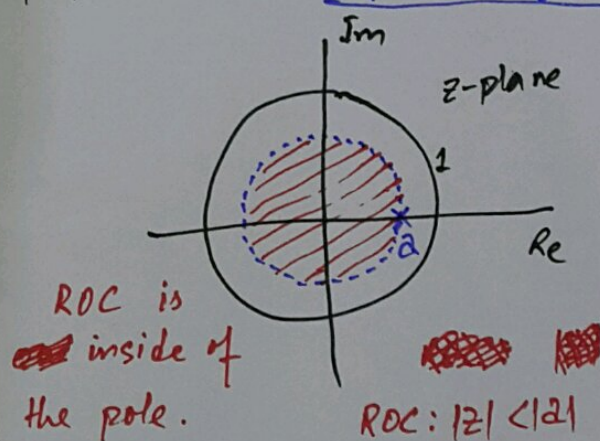 Im
z-plane
1
a
Re
ROC is
inside of
the pole.
ROC: |z| <|a|